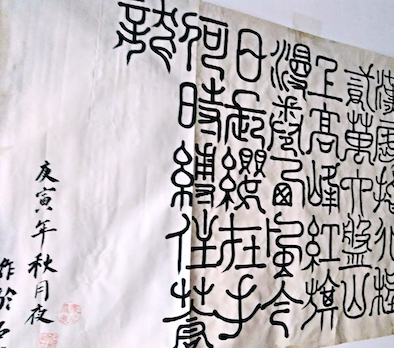 漢屈指行程
貳萬六盤山
上高峰紅旗
漫卷西風今
日長纓在手
何時縛住蒼
龍
庚寅年秋月夜
作於